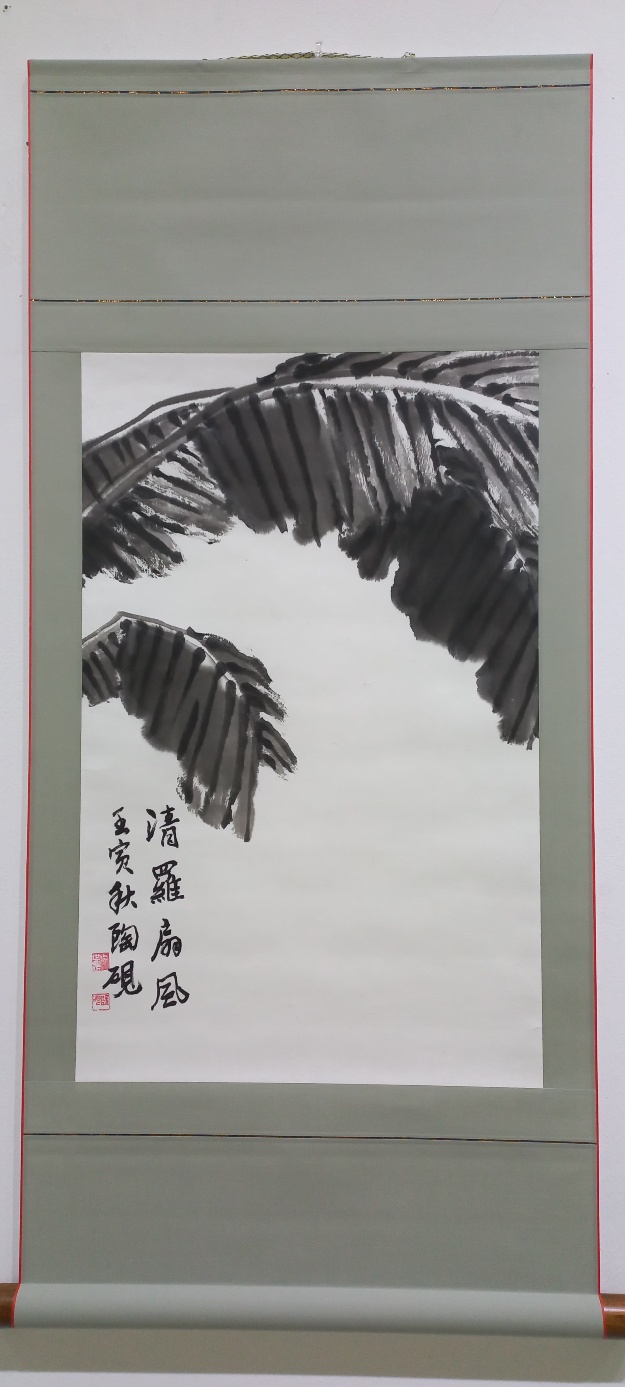 清羅扇風
壬寅秋陶硯